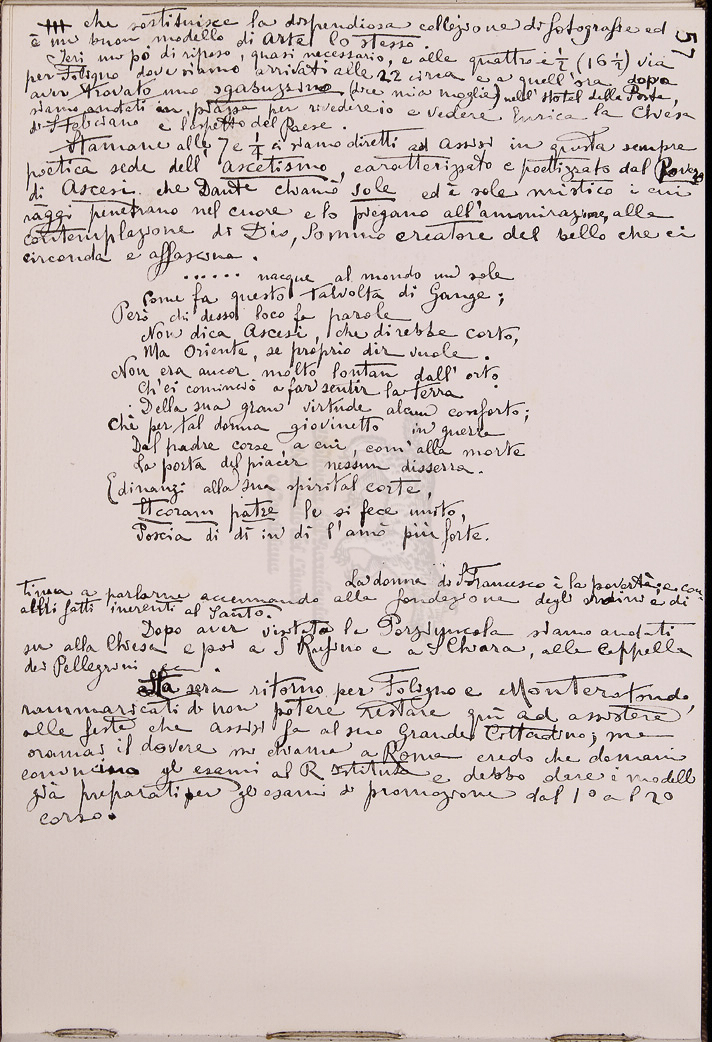 57
che sostituisce la dispendiosa collezione di fotografie ed
è un buon modello di Arte lo stesso.
Ieri un pò di riposo, quasi necessario, e alle quattro e ½ (16 ½) via
per Foligno dove siamo arrivati alle 22 circa e a quell'ora dopo
aver trovato uno sgabuzzino (dice mia moglie) nell'Hotel della Posta,
siamo andati in piazza per rivedere io e vedere Enrica la Chiesa
di S. Feliciano e l'aspetto del Paese.
Stamane alle 7 e ¼ ci siamo diretti ad Assisi in questa sempre
poetica sede dell'Ascetismo, caratterizzato e poetizzato dal Povero
di Ascesi che Dante chiamò sole ed è sole mistico i cui
raggi penetrano nel cuore e lo piegano all'ammirazione, alla
contemplazione di Dio, Sommo creatore del bello che ci
circonda e affascina.
...... nacque al mondo un sole
Come fa questo talvolta di Gange;
Però chi d'esso loco fa parole
Non dica Ascesi, che direbbe corto,
Ma Oriente, se proprio dir vuole.
Non era ancor molto lontan dall'orto
Ch'ei cominciò a far sentir la terra
Della sua gran virtude alcun conforto;
Chè per tal donna giovinetto in guerra
Dal padre corse, a cui, com'alla morte
La porta del piacer nessun disserra.
E dinanzi alla sua spirital corte,
Et coram patre le si fece unito,
Poscia di dì in dì l'amò più forte.
La donna di S. Francesco è la povertà; e con-
tinua a parlarne accennando alla fondazione degli ordini e di
altri fatti inerenti al Santo.
Dopo aver visitata la Porziuncola siamo andati
su alla Chiesa e poi a S. Rufino e a S. Chiara, alle Cappella
dei Pellegrini
Sta sera ritorno per Foligno e Monterotondo,
rammaricati di non potere restare qui ad assistere
alle feste che Assisi fa al suo Grande Cittadino; ma
oramai il dovere mi chiama a Roma credo che domani
cominciano gli esami al R. Istituto e debbo dare i modelli
già preparati per gli esami di promozione dal 1º al 2º
corso.